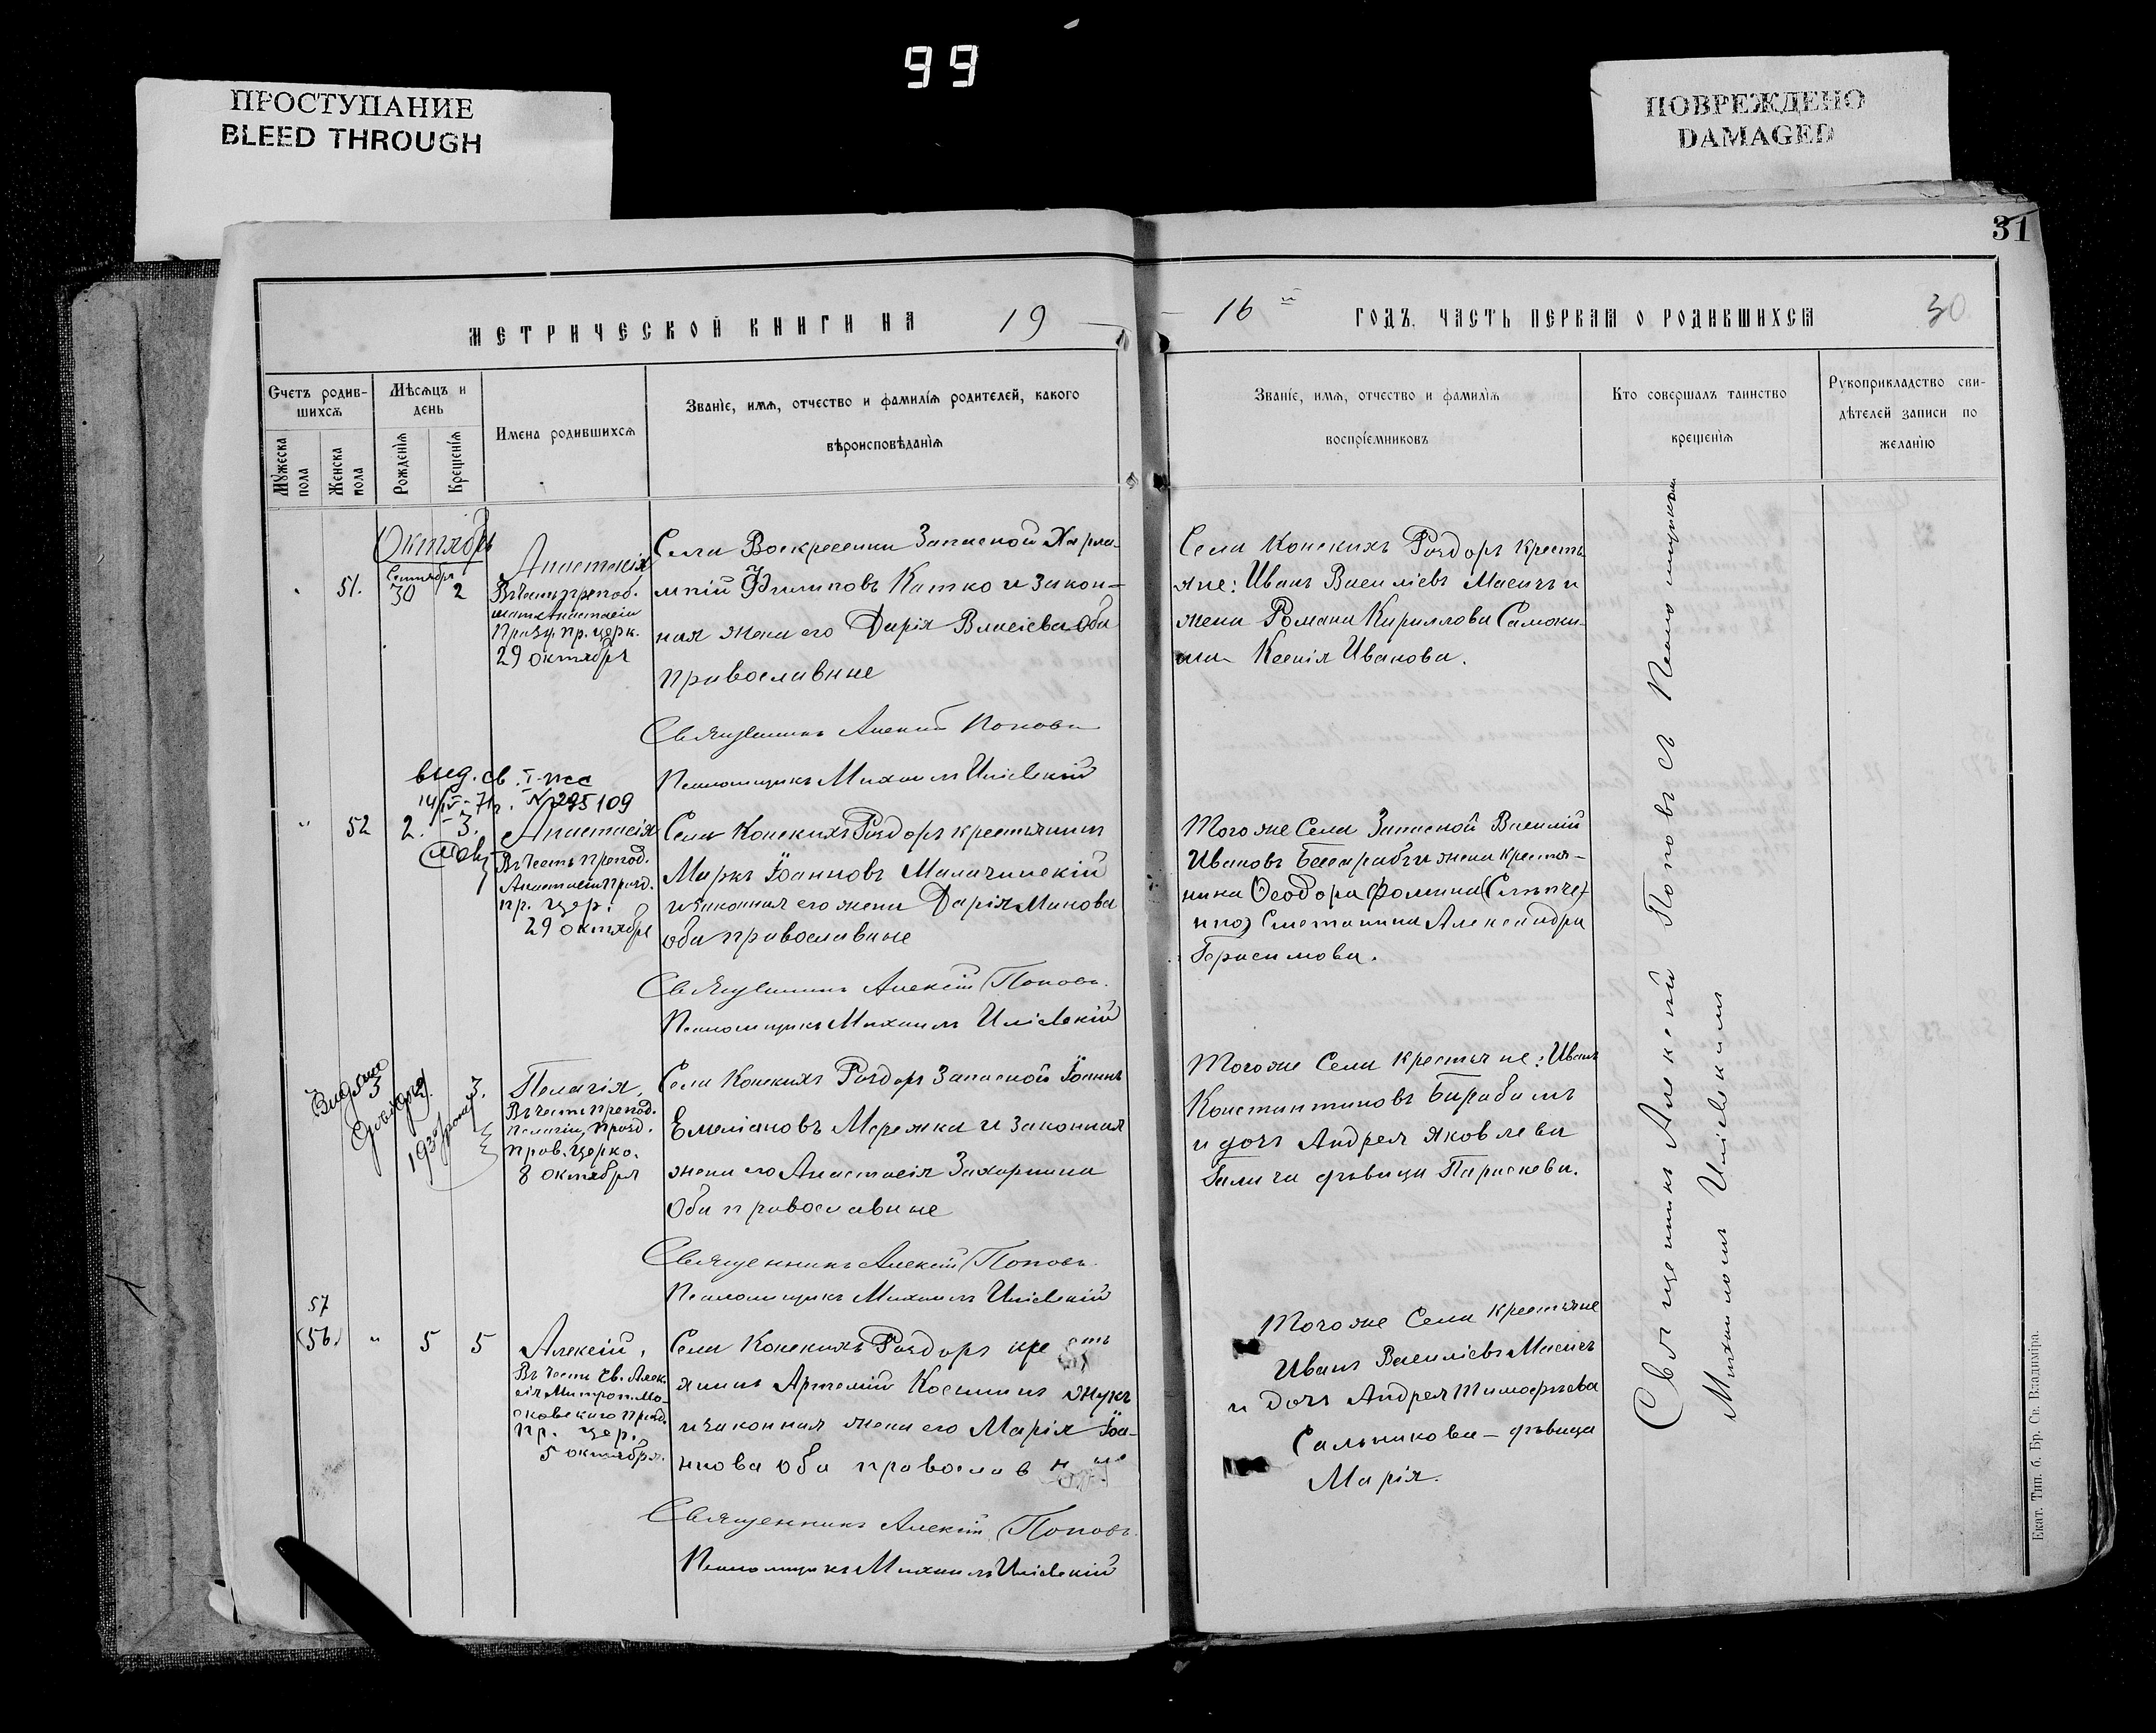 99
ПРОСТУПАНИЕ
BLEED THROUGH
ПОВРЕЖДЕНО
DAMAGED
31
МЕТРИЧЕСКОЙ КНИГИ НА 19
16й ГОДЪ, ЧАСТЬ ПЕРВАЯ О РОДИВШИХСЯ
30
Счетъ родив-
шихся
Мужеска
пола
Женска
пола
Мѣсяцъ и
день
Рожденія
Крещенія
Имена родившихся
Званіе, имя, отчество и фамилія родителей, какого
вѣроисповѣданія
Званіе, имя, отчество и фамилія
воспріемниковъ
Кто совершалъ таинство
крещенія
Рукоприкладство сви-
дѣтелей записи по
желанію
Октябрь
Сентября
" 51. 30 2
Анастасія
Въ честь препод.
Анастасіи
Празд. пр. церк.
29 октября
Села Воскресенки Запасной Харла-
мпій Филиповъ Катко и закон-
ная жена его Дарія Власіева оба
православные
Священникъ Алексій Поповъ
Псаломщикъ Михаилъ Иліевскій
Села Конскихъ Роздоръ кресть
яне: Иванъ Василіевъ Масичъ и
жена Романа Кириллова Самоки-
ша Ксенія Иванова.
выд. св.
№ 295109
" 52 2. 3.
Анастасія
Въ честь препод.
Анастасіи празд.
пр. цер.
29 октября
Села Конскихъ Роздоръ крестьянинъ
Маркъ Іоанновъ Малачинскій
и законная его жена Дарія Минова
оба православные
Священникъ Алексій Поповъ.
Псаломщикъ Михаилъ Иліевскій
Того же Села Запасной Василій
Ивановъ Бессарабъ и жена крестья-
нина Ѳеодора Фомина
Сметанина Александра
Герасимова.
Выдана
193
3.
Пелагія,
Въ честь препод.
Пелагіи, празд.
прав. церко.
8 октября
Села Конскихъ Роздоръ Запасной Іоаннъ
Емеліановъ Мережка и законная
жена его Анастасія Захариина
Оба православные
Священникъ Алексій Поповъ.
Псаломщикъ Михаилъ Иліевскій
Того же Села крестьяне: Иванъ
Константиновъ Барабашъ
и дочь Андрея Яковлева
Галича дѣвица Параскева.
57
(56) " 5 5
Алексій,
Въ честь св. Алек-
сія Митроп. Мо-
сковскаго празд.
пр. цер.
5 октября.
Села Конскихъ Роздоръ кресть
янинъ Артемій Косминъ Жукъ
и законная жена его Марія Іоа-
ннова оба православные
Священникъ Алексій Поповъ.
Псаломщикъ Михаилъ Иліевскій
Того же Села крестьяне
Иванъ Василіевъ Масичъ
и дочь Андрея Тимофѣева
Сальникова – дѣвица
Марія.
Священникъ Алексій Поповъ съ Псаломщикомъ
Михаиломъ Иліевскимъ
Екат. Тип. б. Бр. Св. Владиміра.